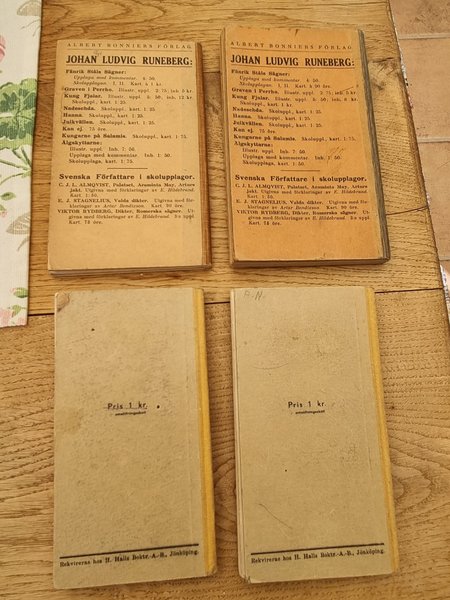 ALBERT BONNIERS FÖRLAG
JOHAN LUDVIG RUNEBERG:
Fänrik Ståls Sägner:
Upplaga med kommentar 4: 50.
Skolupplagan. I, II. Kart à 1 kr.
Graven i Perrho. Illustr. uppl. 2: 75, inb. 5 kr.
Kung Fjalar. Illustr. uppl. 5: 50, inb. 12 kr.
Skoluppl., kart. 1: 25.
Nadeschda. Skoluppl., kart. 1: 25.
Hanna. Skoluppl., kart. 1: 25.
Julkvällen. Skoluppl., kart. 1: 25.
Kan ej. 75 öre.
Kungarne på Salamis. Skoluppl., kart. 1: 75.
Älgskyttarne:
Illustr. uppl. Inb. 7: 50.
Upplaga med kommentar Inb. 1: 50.
Skolupplaga, kart. 1: 75.
Svenska Författare i skolupplagor.
C. J. L. ALMQVIST, Palatset, Araminta May, Arturs
jakt. Utgivna med förklaringar av E. Hildebrand.
Kart. 1: 50.
E. J. STAGNELIUS, Valda dikter. Utgivna med för-
klaringar av Artur Bendixson. Kart. 90 öre.
VIKTOR RYDBERG, Dikter, Romerska sägner. Ut-
givna med förklaringar av E. Hildebrand. 5:e uppl.
Kart. 75 öre.
ALBERT BONNIERS FÖRLAG
JOHAN LUDVIG RUNEBERG:
Fänrik Ståls Sägner:
Upplaga med kommentar 4: 50.
Skolupplagan. I, II. Kart à 90 öre.
Graven i Perrho. Illustr. uppl. 2: 75, inb. 5 kr.
Kung Fjalar. Illustr. uppl. 5: 50, inb. 8 kr.
Skoluppl., kart. 1 kr.
Nadeschda. Skoluppl., kart. 1: 25.
Hanna. Skoluppl., kart. 1: 25.
Julkvällen. Skoluppl., kart. 1: 25.
Kan ej. 75 öre.
Kungarne på Salamis. Skoluppl., kart. 1: 75.
Älgskyttarne:
Illustr. uppl. Inb. 7: 50.
Upplaga med kommentar Inb. 1: 50.
Skolupplaga, kart. 1: 75.
Svenska Författare i skolupplagor.
C. J. L. ALMQVIST, Palatset, Araminta May, Arturs
jakt. Utgivna med förklaringar av E. Hildebrand.
Kart. 1: 50.
E. J. STAGNELIUS, Valda dikter. Utgivna med för-
klaringar av Artur Bendixson. Kart. 90 öre.
VIKTOR RYDBERG, Dikter, Romerska sägner. Ut-
givna med förklaringar av E. Hildebrand. 5:e uppl.
Kart. 75 öre.
Pris 1 kr.
omsättningsskatt
Rekvireras hos H. Halls Boktr.-A.-B., Jönköping.
Pris 1 kr.
omsättningsskatt
Rekvireras hos H. Halls Boktr.-A.-B., Jönköping.